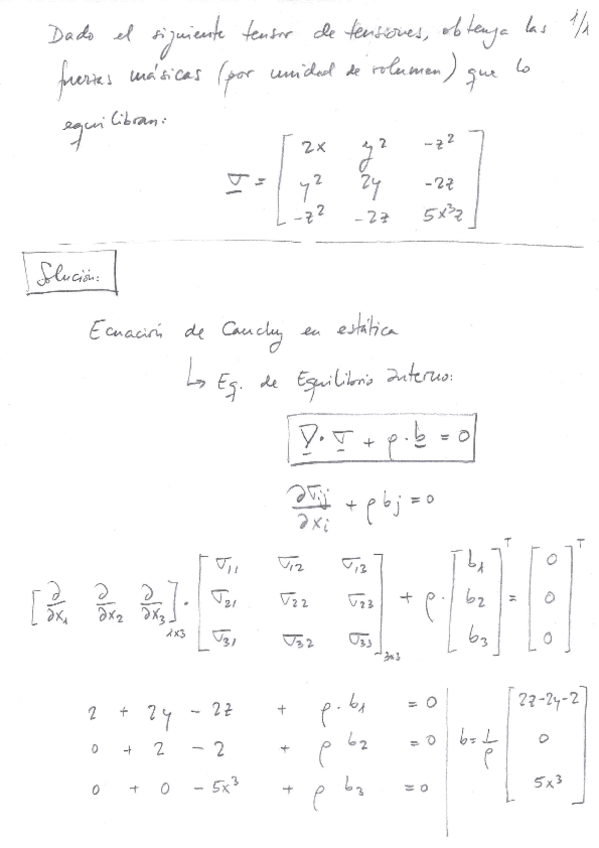 Dado el siguiente tensor de tensiones, obtenga las 1/1
fuerzas másicas (por unidad de volumen) que lo
equilibran:
σ = [ 2x y² -z² ]
[ y² 2y -2z ]
[ -z² -2z 5x³z ]
Solución:
Ecuación de Cauchy en estática
↳ Eq. de Equilibrio Interno:
∇·σ + ρ·b = 0
∂σij/∂xi + ρbj = 0
[∂/∂x1 ∂/∂x2 ∂/∂x3]1x3 · [σ11 σ12 σ12; σ21 σ22 σ23; σ31 σ32 σ33]3x3 + ρ·[b1; b2; b3]ᵀ = [0; 0; 0]ᵀ
2 + 2y - 2z + ρ·b1 = 0
0 + 2 - 2 + ρ b2 = 0
0 + 0 - 5x³ + ρ b3 = 0
b = 1/ρ [ 2z-2y-2 ]
[ 0 ]
[ 5x³ ]